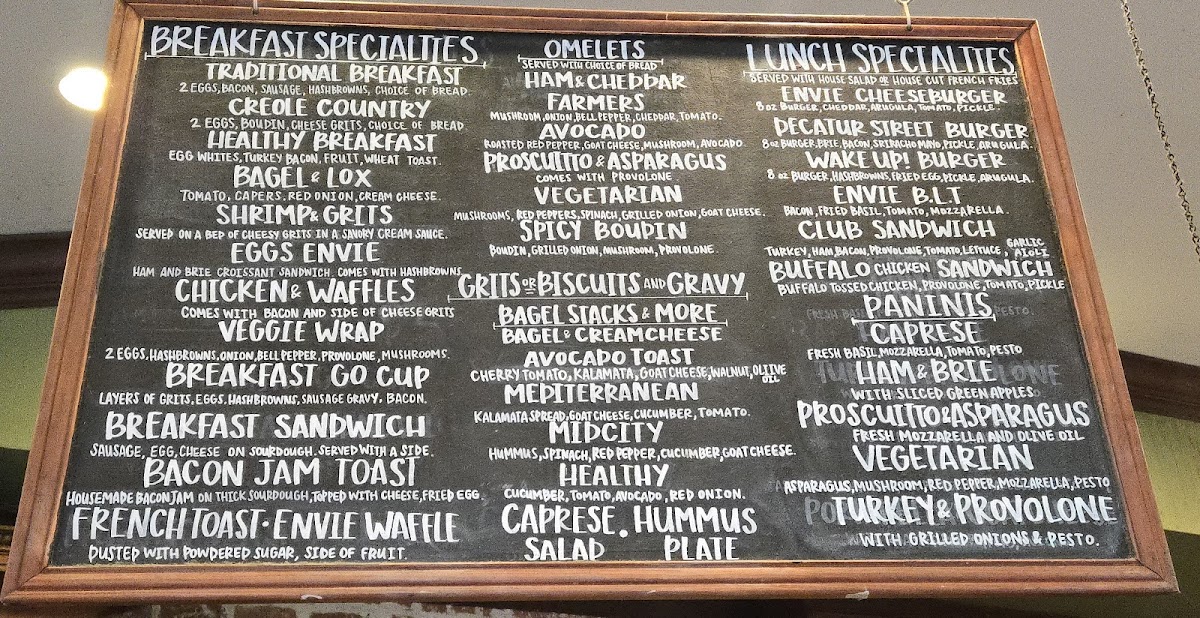 BREAKFAST SPECIALTIES
TRADITIONAL BREAKFAST
2 EGGS, BACON, SAUSAGE, HASHBROWNS, CHOICE OF BREAD.
CREOLE COUNTRY
2 EGGS, BOUDIN, CHEESE GRITS, CHOICE OF BREAD
HEALTHY BREAKFAST
EGG WHITES, TURKEY BACON, FRUIT, WHEAT TOAST.
BAGEL & LOX
TOMATO, CAPERS, RED ONION, CREAM CHEESE.
SHRIMP & GRITS
SERVED ON A BED OF CHEESY GRITS IN A SAVORY CREAM SAUCE.
EGGS ENVIE
HAM AND BRIE CROISSANT SANDWICH COMES WITH HASHBROWNS
CHICKEN & WAFFLES
COMES WITH BACON AND SIDE OF CHEESE GRITS
VEGGIE WRAP
2 EGGS, HASHBROWNS, ONION, BELL PEPPER, PROVOLONE, MUSHROOMS.
BREAKFAST GO CUP
LAYERS OF GRITS, EGGS, HASHBROWNS, SAUSAGE GRAVY, BACON.
BREAKFAST SANDWICH
SAUSAGE, EGG, CHEESE ON SOURDOUGH. SERVED WITH A SIDE.
BACON JAM TOAST
HOUSEMADE BACON JAM ON THICK SOURDOUGH, TOPPED WITH CHEESE, FRIED EGG.
FRENCH TOAST · ENVIE WAFFLE
DUSTED WITH POWDERED SUGAR, SIDE OF FRUIT.
OMELETS
SERVED WITH CHOICE OF BREAD
HAM & CHEDDAR
FARMERS
MUSHROOM, ONION, BELL PEPPER, CHEDDAR, TOMATO.
AVOCADO
ROASTED RED PEPPER, GOAT CHEESE, MUSHROOM, AVOCADO.
PROSCUITTO & ASPARAGUS
COMES WITH PROVOLONE
VEGETARIAN
MUSHROOMS, RED PEPPERS, SPINACH, GRILLED ONION, GOAT CHEESE.
SPICY BOUDIN
BOUDIN, GRILLED ONION, MUSHROOM, PROVOLONE
GRITS OR BISCUITS AND GRAVY
BAGEL STACKS & MORE
BAGEL & CREAMCHEESE
AVOCADO TOAST
CHERRY TOMATO, KALAMATA, GOAT CHEESE, WALNUT, OLIVE OIL
MEDITERRANEAN
KALAMATA SPREAD, GOAT CHEESE, CUCUMBER, TOMATO.
MIDCITY
HUMMUS, SPINACH, RED PEPPER, CUCUMBER, GOAT CHEESE.
HEALTHY
CUCUMBER, TOMATO, AVOCADO, RED ONION.
CAPRESE . HUMMUS
SALAD PLATE
LUNCH SPECIALTIES
SERVED WITH HOUSE SALAD OR HOUSE CUT FRENCH FRIES
ENVIE CHEESEBURGER
8 OZ BURGER, CHEDDAR, ARUGULA, TOMATO, PICKLE.
DECATUR STREET BURGER
8 OZ BURGER, BRIE, BACON, SRIRACHA MAYO, PICKLE, ARUGULA.
WAKE UP! BURGER
8 OZ BURGER, HASHBROWNS, FRIED EGG, PICKLE, ARUGULA.
ENVIE B.L.T
BACON, FRIED BASIL, TOMATO, MOZZARELLA.
CLUB SANDWICH
TURKEY, HAM, BACON, PROVOLONE, TOMATO, LETTUCE, GARLIC AIOLI
BUFFALO CHICKEN SANDWICH
BUFFALO TOSSED CHICKEN, PROVOLONE, TOMATO, PICKLE
PANINIS
CAPRESE
FRESH BASIL, MOZZARELLA, TOMATO, PESTO
HAM & BRIE
WITH SLICED GREEN APPLES
PROSCUITTO & ASPARAGUS
FRESH MOZZARELLA AND OLIVE OIL
VEGETARIAN
ASPARAGUS, MUSHROOM, RED PEPPER, MOZZARELLA, PESTO
TURKEY & PROVOLONE
WITH GRILLED ONIONS & PESTO.